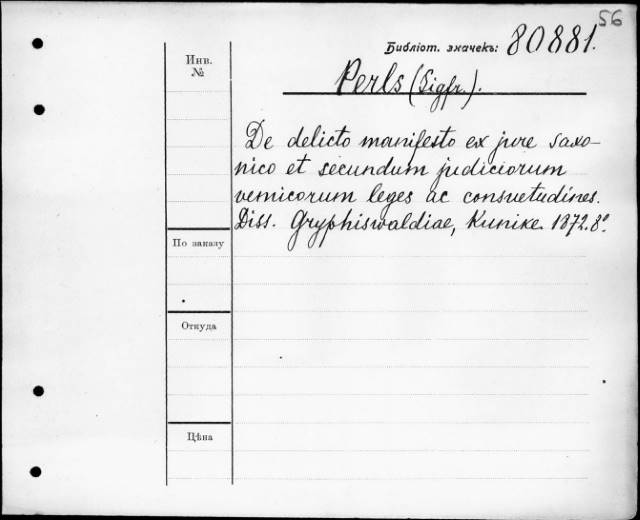 56
Библіот. значекъ: 80881.
Инв.
№
Perls (Sigfr.).
De delicto manifesto ex jure saxo-
nico et secundum judiciorum
vemicorum leges ac consuetudines.
Diss. Gryphiswaldiae, Kunike. 1872. 8º.
По заказу
Откуда
Цѣна